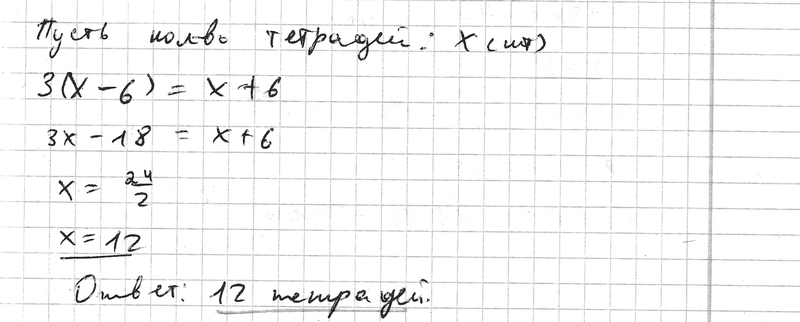 Пусть кол-во тетрадей: x (шт)
3(x - 6) = x + 6
3x - 18 = x + 6
x = 24/2
x = 12
Ответ: 12 тетрадей.